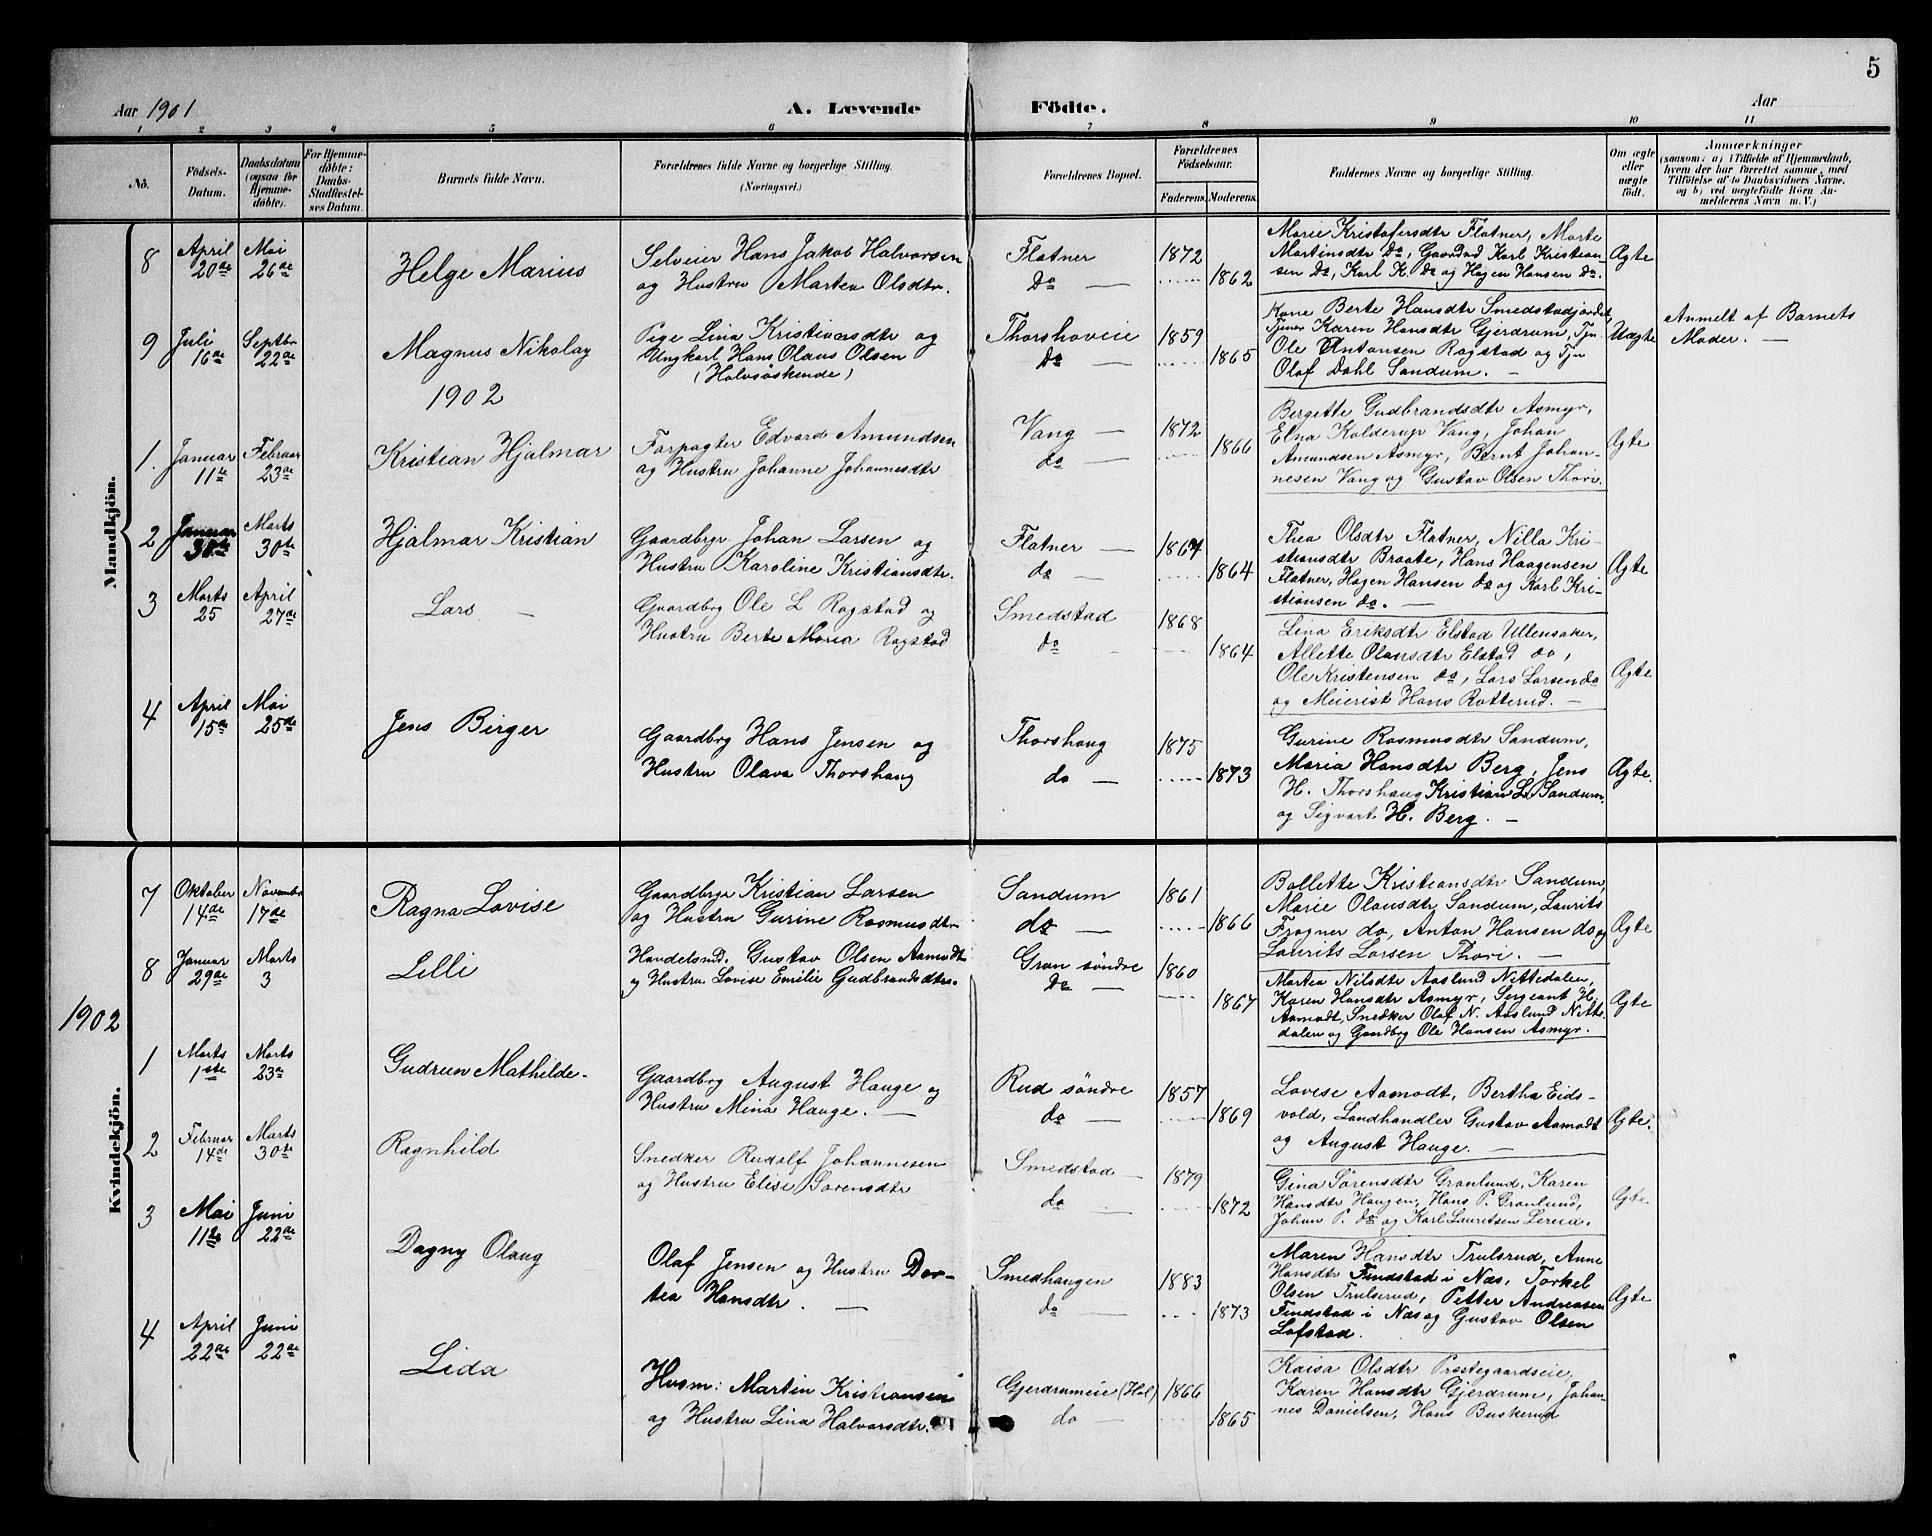 5
Aar 1901
A. Levende Födte.
Aar
1 2 3 4 5 6 7 8 9 10 11
No.
Födsels-Datum.
Daabsdatum (ogsaa for Hjemmedöbte).
For Hjemmedöbte: Daabs-Stadfæstelses Datum.
Barnets fulde Navn.
Forældrenes fulde Navne og borgerlige Stilling.
(Næringsvei.)
Forældrenes Bopæl.
Forældrenes Födselsaar.
Faderens. Moderens.
Faddernes Navne og borgerlige Stilling.
Om ægte eller uægte födt.
Anmerkninger
(saasom: a) i Tilfælde af Hjemmedaab,
hvem der har forrettet samme, med
Tilföielse af to Daabsvidners Navne,
og b) ved uægtefödte Börn Anmelderens Navn m. V.)
Mandkjön.
8 April 20de Mai 26de Helge Marius
Selveier Hans Jakob Halvorsen
og Hustru Marten Olsdtr.
Flatner 1872
do 1862
Marie Kristofersdtr Flatner, Marte
Martinsdtr do, Gaardbd Karl Kristian-
sen do, Karl K. do og Hagen Hansen do.
Ægte
9 Juli 16de Septbr 22de Magnus Nikolay
Pige Lina Kristiansdtr og
Ungkarl Hans Olaus Olsen
(Halvsöskende)
Thorshoveie 1859
do 1865
Kone Berte Hansdtr Smedstadjordet,
Tjener Karen Hansdtr Gjerdrum, Tjn
Ole Antonsen Ragstad og Tjn
Olaf Dahl Sandum.
Uægte
Anmelt af Barnets
Moder.
1902
1. Januar 11te Februar 23de Kristian Hjalmar
Forpagter Edvard Amundsen
og Hustru Johanne Johannesdtr
Vang 1872
do 1866
Bergette Gudbrandsdtr Asmyr,
Elna Kolderup Vang, Johan
Amundsen Asmyr, Bernt Johan-
nesen Vang og Gustav Olsen Thori.
Ægte
2 Januar 30te Marts 30te Hjalmar Kristian
Gaardbryr Johan Larsen og
Hustru Karoline Kristiansdtr.
Flatner 1864
do 1864
Thea Olsdtr Flatner, Nilla Kri-
stiansdtr Braate, Hans Haagensen
Flatner, Hagen Hansen do og Karl Kri-
stiansen do.
Ægte
3 Marts 25 April 27de Lars
Gaardbrg Ole L Ragstad og
Hustru Berte Maria Ragstad
Smedstad 1868
do 1864
Lina Eriksdtr Elstad Ullensaker,
Allette Olausdtr Elstad do,
Ole Kristensen do, Lars Larsen do
og Meierist Hans Rotterud.
Ægte
4 April 15de Mai 25de Jens Birger
Gaardbrg Hans Jensen og
Hustru Olava Thorshaug
Thorshaug 1875
do 1873
Gurine Rasmusdtr Sandum,
Maria Hansdtr Berg, Jens
H. Thorshaug Kristian L. Sandum,
og Sigvart H. Berg.
Ægte.
Kvindekjön.
7 Oktober 14de Novembr 17de Ragna Lovise
Gaardbryr Kristian Larsen
og Hustru Gurine Rasmusdtr
Sandum 1861
do 1866
Bollette Kristiansdtr Sandum,
Marie Olausdtr Sandum, Laurits
Frogner do, Anton Hansen do og
Laurits Larsen Thori.
Ægte
8 Januar 29de Marts 3 Lilli
Handelsmd. Gustav Olsen Aamodt
og Hustru Lovise Emilie Gudbrandsdtr.
Gran söndre 1860
do 1867
Martea Nilsdtr Aaslund Nittedalen,
Karen Hansdtr Asmyr, Sergeant H.
Aamodt, Snedker Olaf N. Aaslund Nitte-
dalen og Gaardbrg Ole Hansen Asmyr.
Ægte
1902
1 Marts 1ste Marts 23de Gudrun Mathilde
Gaardbrg August Hauge og
Hustru Mina Hauge.
Rud söndre 1857
do 1869
Lovise Aamodt, Bertha Eids-
vold, Landhandler Gustav Aamodt
og August Hauge.
Ægte.
2 Februar 14de Marts 30te Ragnhild
Snedker Rudolf Johannesen
og Hustru Elise Sörensdtr
Smedstad 1879
do 1872
Gina Sörensdtr Granlund, Karen
Hansdtr Haugen, Hans P. Granlund,
Johan P. do og Karl Lauritsen Lereia.
Ægte
3 Mai 11te Juni 22de Dagny Olaug
Olaf Jensen og Hustru Dor-
tea Hansdtr.
Smedhaugen 1883
do 1873
Maren Hansdtr Trulsrud, Anne
Hansdtr Findstad i Næs, Torkel
Olsen Trulsrud, Petter Andreasen
Findstad i Næs og Gustav Olsen
Lofstad.
Ægte
4 April 22de Juni 22de Lida
Husm: Martin Kristiansen
og Hustru Lina Halvorsdtr.
Gjerdrumeie (Hol) 1866
do 1865
Kaisa Olsdtr Præstegaardseie,
Karen Hansdtr Gjerdrum, Johan-
nes Danielsen, Hans Buskerud